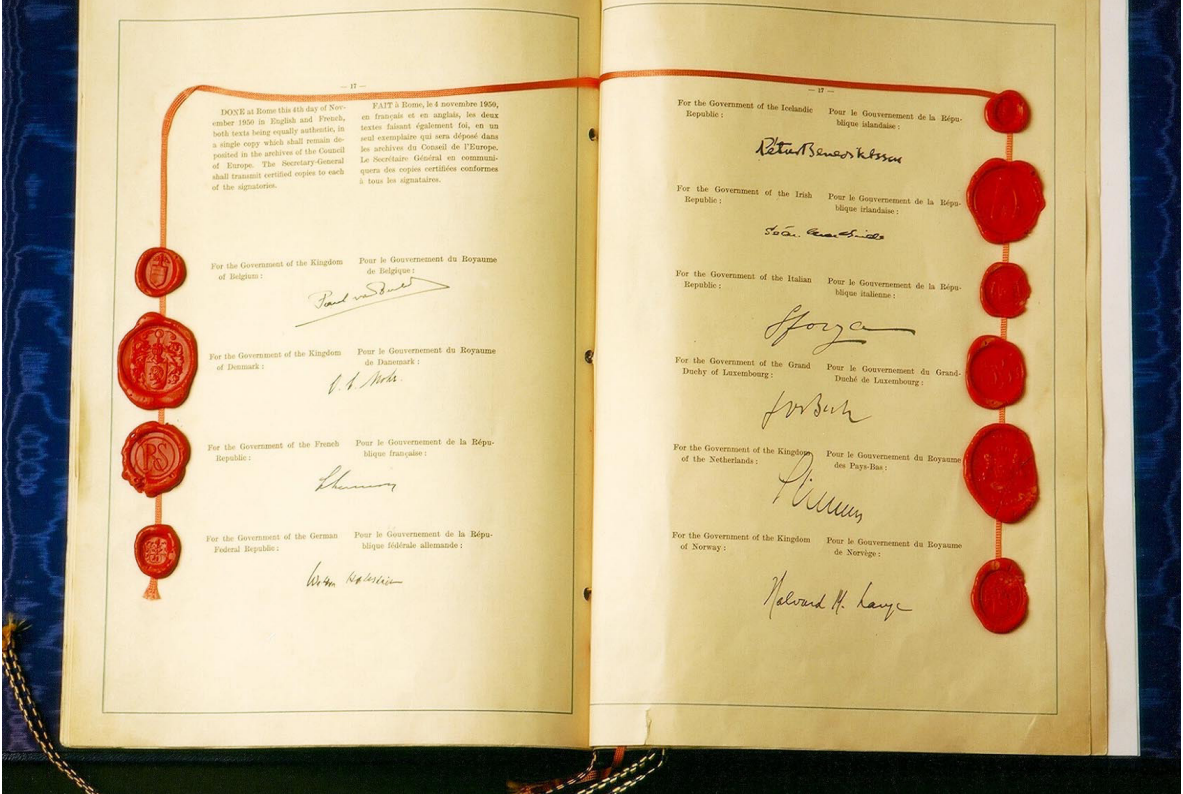 — 17 —
DONE at Rome this 4th day of Nov-
ember 1950 in English and French,
both texts being equally authentic, in
a single copy which shall remain de-
posited in the archives of the Council
of Europe. The Secretary-General
shall transmit certified copies to each
of the signatories.
FAIT à Rome, le 4 novembre 1950,
en français et en anglais, les deux
textes faisant également foi, en un
seul exemplaire qui sera déposé dans
les archives du Conseil de l'Europe.
Le Secrétaire Général en communi-
quera des copies certifiées conformes
à tous les signataires.
For the Government of the Kingdom
of Belgium :
Pour le Gouvernement du Royaume
de Belgique :
For the Government of the Kingdom
of Denmark :
Pour le Gouvernement du Royaume
de Danemark :
For the Government of the French
Republic :
Pour le Gouvernement de la Répu-
blique française :
RS
For the Government of the German
Federal Republic :
Pour le Gouvernement de la Répu-
blique fédérale allemande :
— 17 —
For the Government of the Icelandic
Republic :
Pour le Gouvernement de la Répu-
blique islandaise :
Pétur Benediktsson
For the Government of the Irish
Republic :
Pour le Gouvernement de la Répu-
blique irlandaise :
For the Government of the Italian
Republic :
Pour le Gouvernement de la Répu-
blique italienne :
Sforza
For the Government of the Grand
Duchy of Luxembourg :
Pour le Gouvernement du Grand-
Duché de Luxembourg :
For the Government of the Kingdom
of the Netherlands :
Pour le Gouvernement du Royaume
des Pays-Bas :
For the Government of the Kingdom
of Norway :
Pour le Gouvernement du Royaume
de Norvège :
Halvard M. Lange